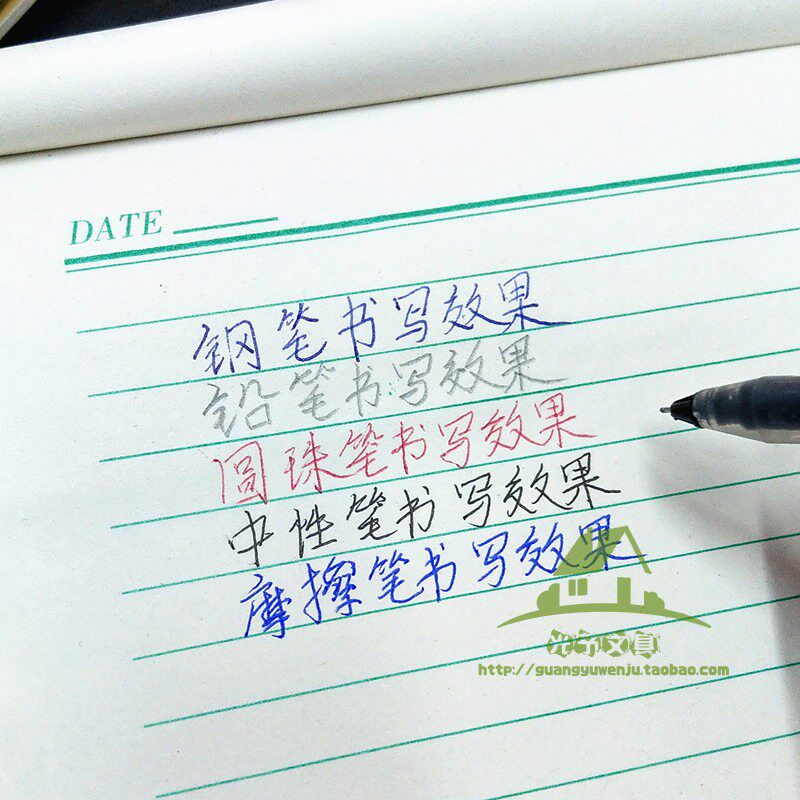 DATE
钢笔书写效果
铅笔书写效果
圆珠笔书写效果
中性笔书写效果
摩擦笔书写效果
文具
http://guangyuwenju.taobao.com